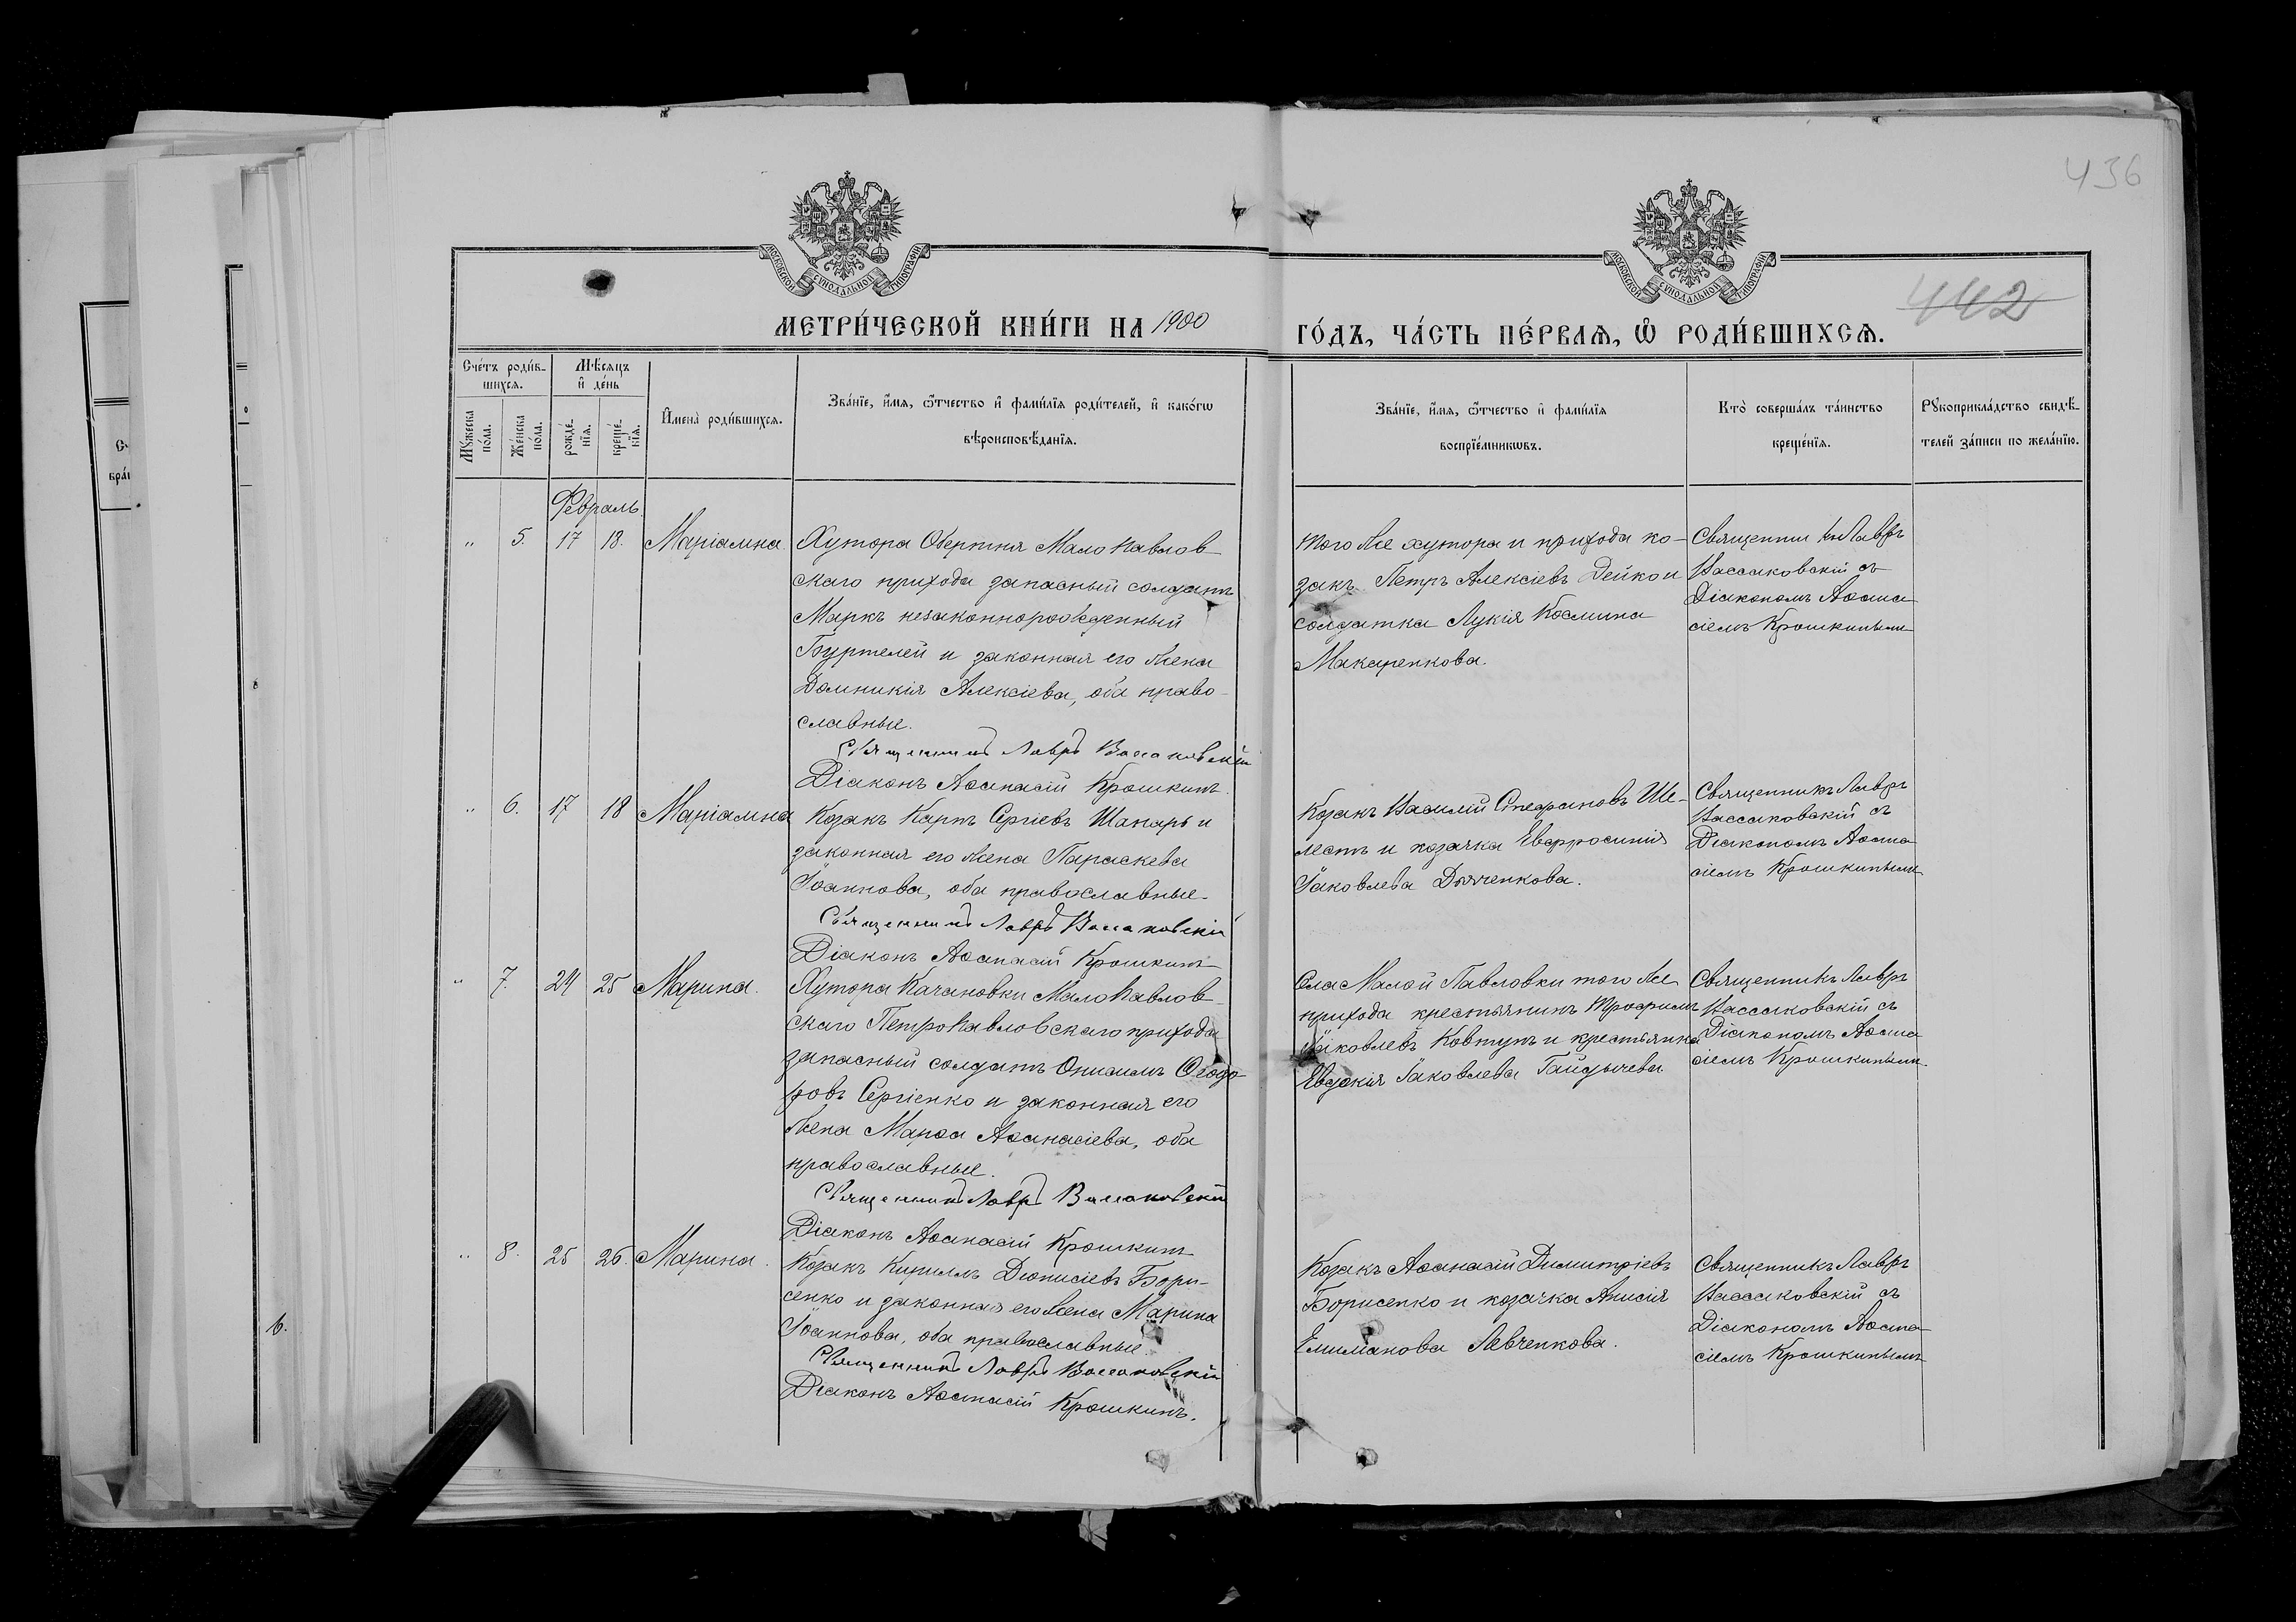 436
442
МЕТРИ́ЧЕСКОЙ КНИ́ГИ НА 1900
ГО́ДЪ, ЧА́СТЬ ПЕ́РВАѦ, Ѡ РОДИ́ВШИХСѦ.
Сче́тъ роди́в-
шихсѧ.
Мѣ́сѧцъ
и҆ де́нь
Мꙋ́жеска
по́ла.
Же́нска
по́ла.
рожде́-
нїѧ.
креще́-
нїѧ.
И҆мена̀ роди́вшихсѧ.
Зва́нїе, и҆́мѧ, ѻ҆́тчество и҆ фами́лїѧ роди́телей, и҆ како́гѡ
вѣроисповѣ́данїѧ.
Зва́нїе, и҆́мѧ, ѻ҆́тчество и҆ фами́лїѧ
воспрїе́мникѡвъ.
Кто̀ соверша́лъ та́инство
креще́нїѧ.
Рꙋкоприкла́дство свидѣ́-
телей за́писи по жела́нїю.
Февраль.
" 5. 17 18. Маріамна.
Хутора Обертня Малопавлов-
скаго прихода запасный солдатъ
Маркъ незаконнорожденный
Буртелей и законная его жена
Домникія Алексіева, оба право-
славные.
Священникъ Лавръ Вассаковскій
Діаконъ Аѳанасій Крошкинъ
того же хутора и прихода ко-
закъ Петръ Алексіевъ Дейко и
солдатка Лукія Космина
Макаренкова.
Священникъ Лавръ
Вассаковскій съ
Діакономъ Аѳана-
сіемъ Крошкинымъ
" 6. 17 18 Маріамна
Козакъ Карпъ Сергіевъ Шапарь и
законная его жена Параскева
Іоаннова, оба православные.
Священникъ Лавръ Вассаковскій
Діаконъ Аѳанасій Крошкинъ
Козакъ Василій Стефановъ Ше-
лестъ и козачка Евфросинія
Іаковлева Дяченкова.
Священникъ Лавръ
Вассаковскій съ
Діакономъ Аѳана-
сіемъ Крошкинымъ
" 7. 24 25 Марина.
Хутора Качановки Малопавлов-
скаго Петропавловскаго прихода
запасный солдатъ Онисимъ Ѳеодо-
ровъ Сергіенко и законная его
жена Марѳа Аѳанасіева, оба
православные.
Священникъ Лавръ Вассаковскій
Діаконъ Аѳанасій Крошкинъ
Села Малой Павловки того же
прихода крестьянинъ Трофимъ
Іаковлевъ Ковтунъ и крестьянка
Евдокія Іаковлева Гайдычева
Священникъ Лавръ
Вассаковскій съ
Діакономъ Аѳана-
сіемъ Крошкинымъ
" 8. 25 26. Марина.
Козакъ Кириллъ Діонисіевъ Бори-
сенко и законная его жена Марина
Іоаннова, оба православные.
Священникъ Лавръ Вассаковскій
Діаконъ Аѳанасій Крошкинъ.
Козакъ Аѳанасій Димитріевъ
Борисенко и козачка Анисія
Емиліанова Левченкова.
Священникъ Лавръ
Вассаковскій съ
Діакономъ Аѳана-
сіемъ Крошкинымъ
6.